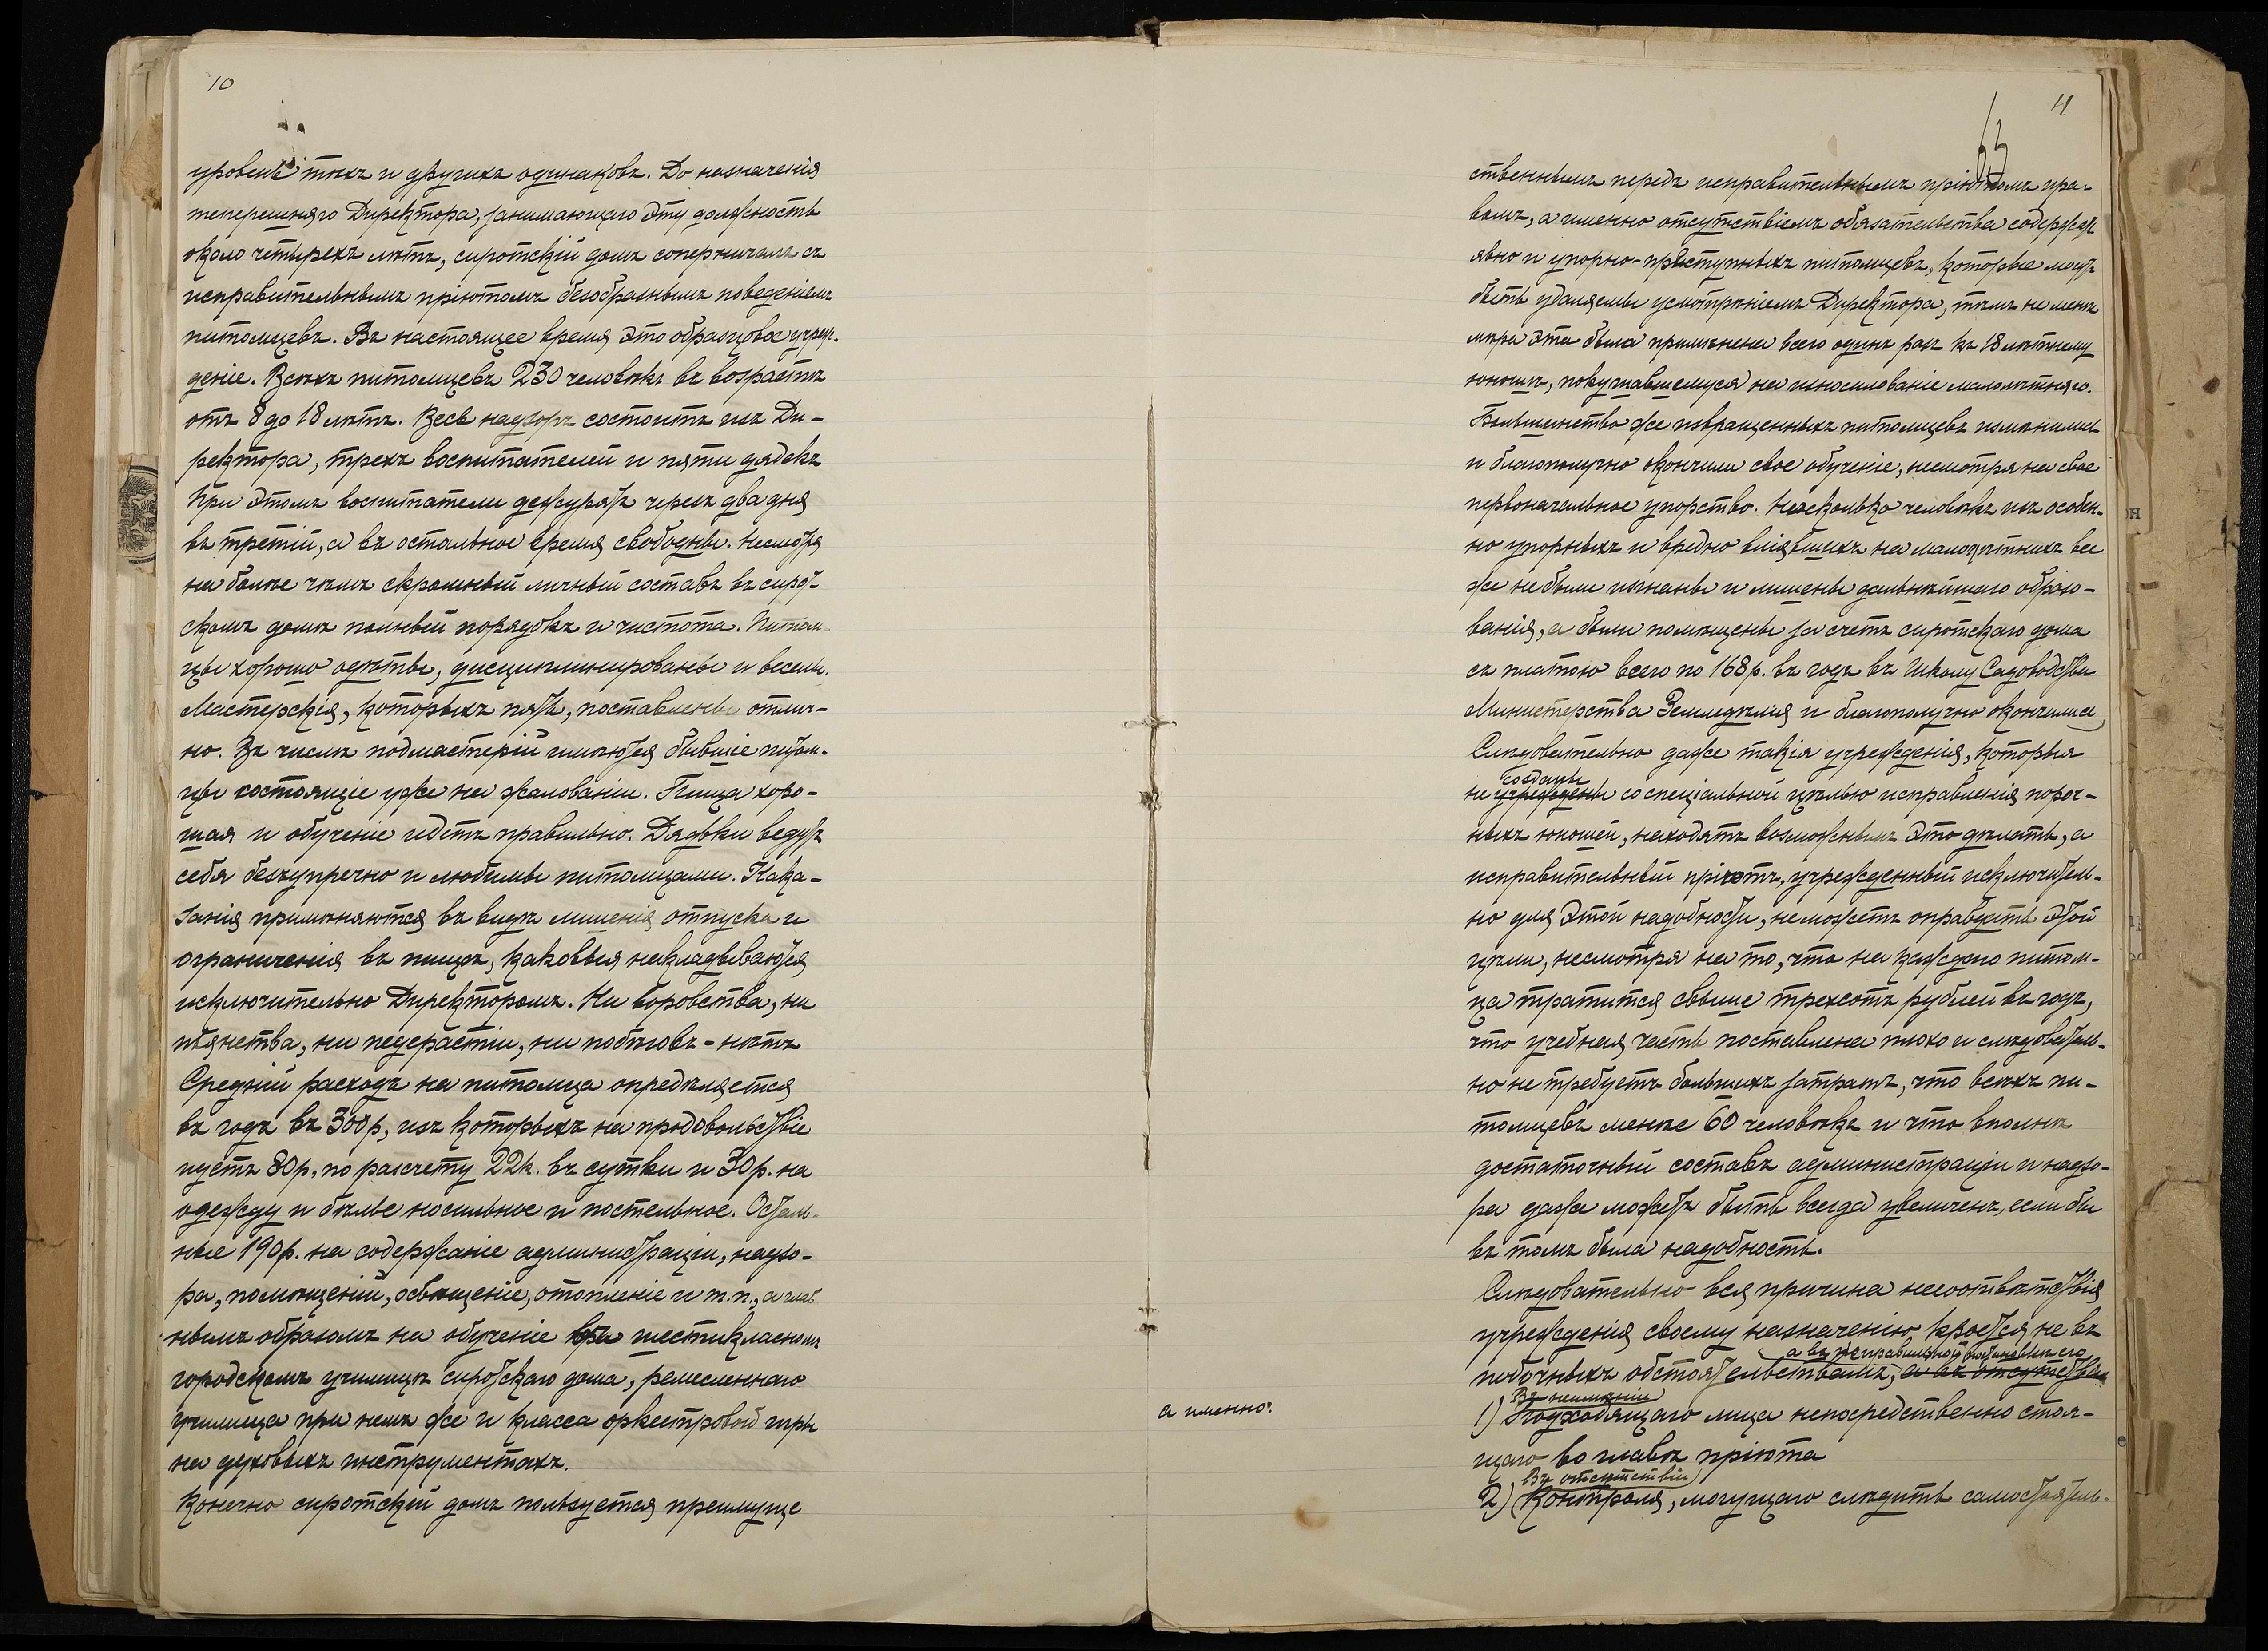 10
уровень тѣхъ и другихъ одинаковъ. До назначенія
теперешняго Директора, занимающаго эту должность
около четырехъ лѣтъ, сиротскій домъ соперничалъ съ
исправительнымъ пріютомъ безобразнымъ поведеніемъ
питомцевъ. Въ настоящее время это образцовое учреж-
деніе. Всѣхъ питомцевъ 230 человѣкъ въ возрастѣ
отъ 8 до 18 лѣтъ. Весь надзоръ состоитъ изъ Ди-
ректора, трехъ воспитателей и пяти дядекъ
При этомъ воспитатели дежурятъ черезъ два дня
въ третій, а въ остальное время свободны. Несмотря
на болѣе чѣмъ скромный личный составъ въ сирот-
скомъ домѣ полный порядокъ и чистота. Питом
цы хорошо одѣты, дисциплинированы и веселы.
Мастерскія, которыхъ пять, поставлены отлич-
но. Въ числѣ подмастерій имѣются бывшіе питом-
цы состоящіе уже на жалованіи. Пища хоро-
шая и обученіе идетъ правильно. Дядьки ведутъ
себя безупречно и любимы питомцами. Нака-
занія примѣняются въ видѣ лишенія отпуска и
ограниченія въ пищѣ, каковыя накладываются
исключительно Директоромъ. Ни воровства, ни
пьянства, ни педерастіи, ни побѣговъ - нѣтъ
Средній расходъ на питомца опредѣляется
въ годъ въ 300 р, изъ которыхъ на продовольствіе
идетъ 80 р, по расчету 22 к. въ сутки и 30 р. на
одежду и бѣлье носильное и постельное. Осталь-
ные 190 р. на содержаніе администраціи, надзо-
ра, помѣщеній, освѣщеніе, отопленіе и т.п., а глав
нымъ образомъ на обученіе въ шестикласномъ
городскомъ училищѣ сиротскаго дома, ремесленнаго
училища при немъ же и класса оркестровой игры
на духовыхъ инструментахъ.
Конечно сиротскій домъ пользуется преимуще
11
63
ственнымъ передъ исправительнымъ пріютомъ пра-
вомъ, а именно отсутствіемъ обязательства содержать
явно и упорно-преступныхъ питомцевъ, которые могутъ
быть удаляемы усмотрѣніемъ Директора, тѣмъ не менѣе
мѣра эта была примѣнена всего одинъ разъ къ 18 лѣтнему
юношѣ, покушавшемуся на изнасилованіе малолѣтняго.
Большинство же извращенныхъ питомцевъ измѣнились
и благополучно окончили свое обученіе, несмотря на свое
первоначальное упорство. Нѣсколько человѣкъ изъ особен-
но упорныхъ и вредно вліявшихъ на малолѣтнихъ все
же не были изгнаны и лишены дальнѣйшаго образо-
ванія, а были помѣщены за счетъ сиротскаго дома
съ платою всего по 168 р. въ годъ въ Школу Садоводства
Министерства Земледѣлія и благополучно окончили
Слѣдовательно даже такія учрежденія, которыя
созданы
не учреждены со спеціальной цѣлью исправленія пороч-
ныхъ юношей, находятъ возможнымъ это дѣлать, а
исправительный пріютъ, учрежденный исключитель-
но для этой надобности, не можетъ оправдать этой
цѣли, несмотря на то, что на каждаго питом-
ца тратится свыше трехсотъ рублей въ годъ,
что учебная часть поставлена плохо и слѣдователь-
но не требуетъ большихъ затратъ, что всѣхъ пи-
томцевъ менѣе 60 человѣкъ и что вполнѣ
достаточный составъ администраціи и надзо-
ра даже можетъ быть всегда увеличенъ, если бы
въ томъ была надобность.
Слѣдовательно вся причина несоотвѣтствія
учрежденія своему назначенію кроется не въ
а въ неправильной постановкѣ его
побочныхъ обстоятельствахъ, а въ отсутствіи
а именно:
Въ неимѣніи
1) Подходящаго лица непосредственно стоя-
щаго во главѣ пріюта
Въ отсутствіи
2) Контроля, могущаго слѣдить самостоятель-